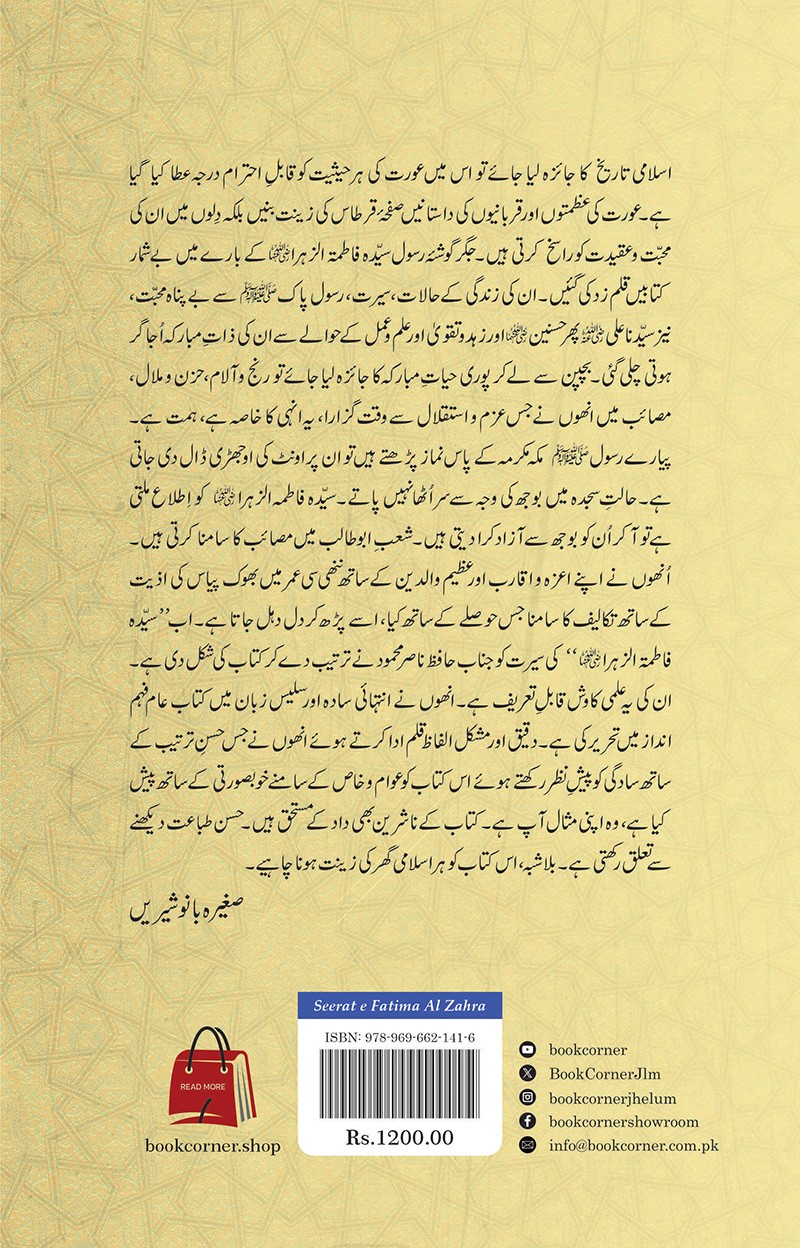 اسلامی تاریخ کا جائزہ لیا جائے تو اس میں عورت کی ہر حیثیت کو قابلِ احترام درجہ عطا کیا گیا
ہے۔ عورت کی عظمتوں اور قربانیوں کی داستانیں صفحۂ قرطاس کی زینت بنیں بلکہ دِلوں میں ان کی
محبّت و عقیدت کو راسخ کرتی ہیں۔ جگر گوشۂ رسول سیّدہ فاطمۃ الزہرا رضی اللہ عنہا کے بارے میں بے شمار
کتابیں قلم زد کی گئیں۔ ان کی زندگی کے حالات، سیرت، رسول پاک ﷺ سے بے پناہ محبّت،
نیز سیّدنا علی رضی اللہ عنہ پھر حسنین رضی اللہ عنہما اور زہد و تقویٰ اور علم و عمل کے حوالے سے ان کی ذاتِ مبارکہ اُجاگر
ہوتی چلی گئی۔ بچپن سے لے کر پوری حیاتِ مبارکہ کا جائزہ لیا جائے تو رنج و آلام، حزن و ملال،
مصائب میں انھوں نے جس عزم و استقلال سے وقت گزارا، یہ انہی کا خاصہ ہے، ہمت ہے۔
پیارے رسول ﷺ مکہ مکرمہ کے پاس نماز پڑھتے ہیں تو ان پر اونٹ کی اوجھڑی ڈال دی جاتی
ہے۔ حالتِ سجدہ میں بوجھ کی وجہ سے سر اُٹھا نہیں پاتے۔ سیّدہ فاطمہ الزہرا رضی اللہ عنہا کو اِطلاع ملتی
ہے تو آ کر اُن کو بوجھ سے آزاد کرا دیتی ہیں۔ شعبِ ابو طالب میں مصائب کا سامنا کرتی ہیں۔
اُنھوں نے اپنے اعزہ و اقارب اور عظیم والدین کے ساتھ ننھی سی عمر میں بھوک پیاس کی اذیت
کے ساتھ تکالیف کا سامنا جس حوصلے کے ساتھ کیا، اسے پڑھ کر دل دہل جاتا ہے۔ اب ’’سیّدہ
فاطمۃ الزہرا رضی اللہ عنہا‘‘ کی سیرت کو جناب حافظ ناصر محمود نے ترتیب دے کر کتاب کی شکل دی ہے۔
ان کی یہ علمی کاوش قابلِ تعریف ہے۔ انھوں نے انتہائی سادہ اور سلیس زبان میں کتاب عام فہم
انداز میں تحریر کی ہے۔ دقیق اور مشکل الفاظ قلم ادا کرتے ہوئے انھوں نے جس حسنِ ترتیب کے
ساتھ سادگی کو پیشِ نظر رکھتے ہوئے اس کتاب کو عوام و خاص کے سامنے خوبصورتی کے ساتھ پیش
کیا ہے، وہ اپنی مثال آپ ہے۔ کتاب کے ناشرین بھی داد کے مستحق ہیں۔ حسن طباعت دیکھنے
سے تعلق رکھتی ہے۔ بلاشبہ، اس کتاب کو ہر اسلامی گھر کی زینت ہونا چاہیے۔
صغیرہ بانو شیریں
Seerat e Fatima Al Zahra
ISBN: 978-969-662-141-6
Rs.1200.00
READ MORE
bookcorner.shop
bookcorner
BookCornerJlm
bookcornerjhelum
bookcornershowroom
info@bookcorner.com.pk